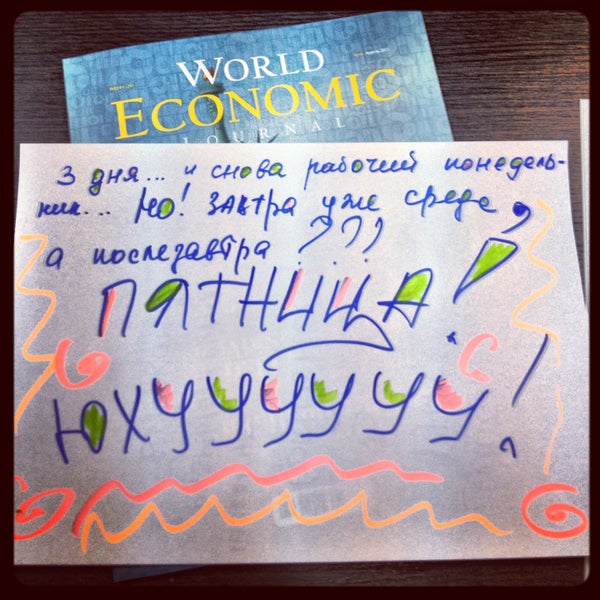 WORLD
ECONOMIC
JOURNAL
3 дня... и снова рабочий понедель-
ник... Но! завтра уже среда,
а послезавтра ???
ПЯТНИЦА!
ЮХУУУУУУ!